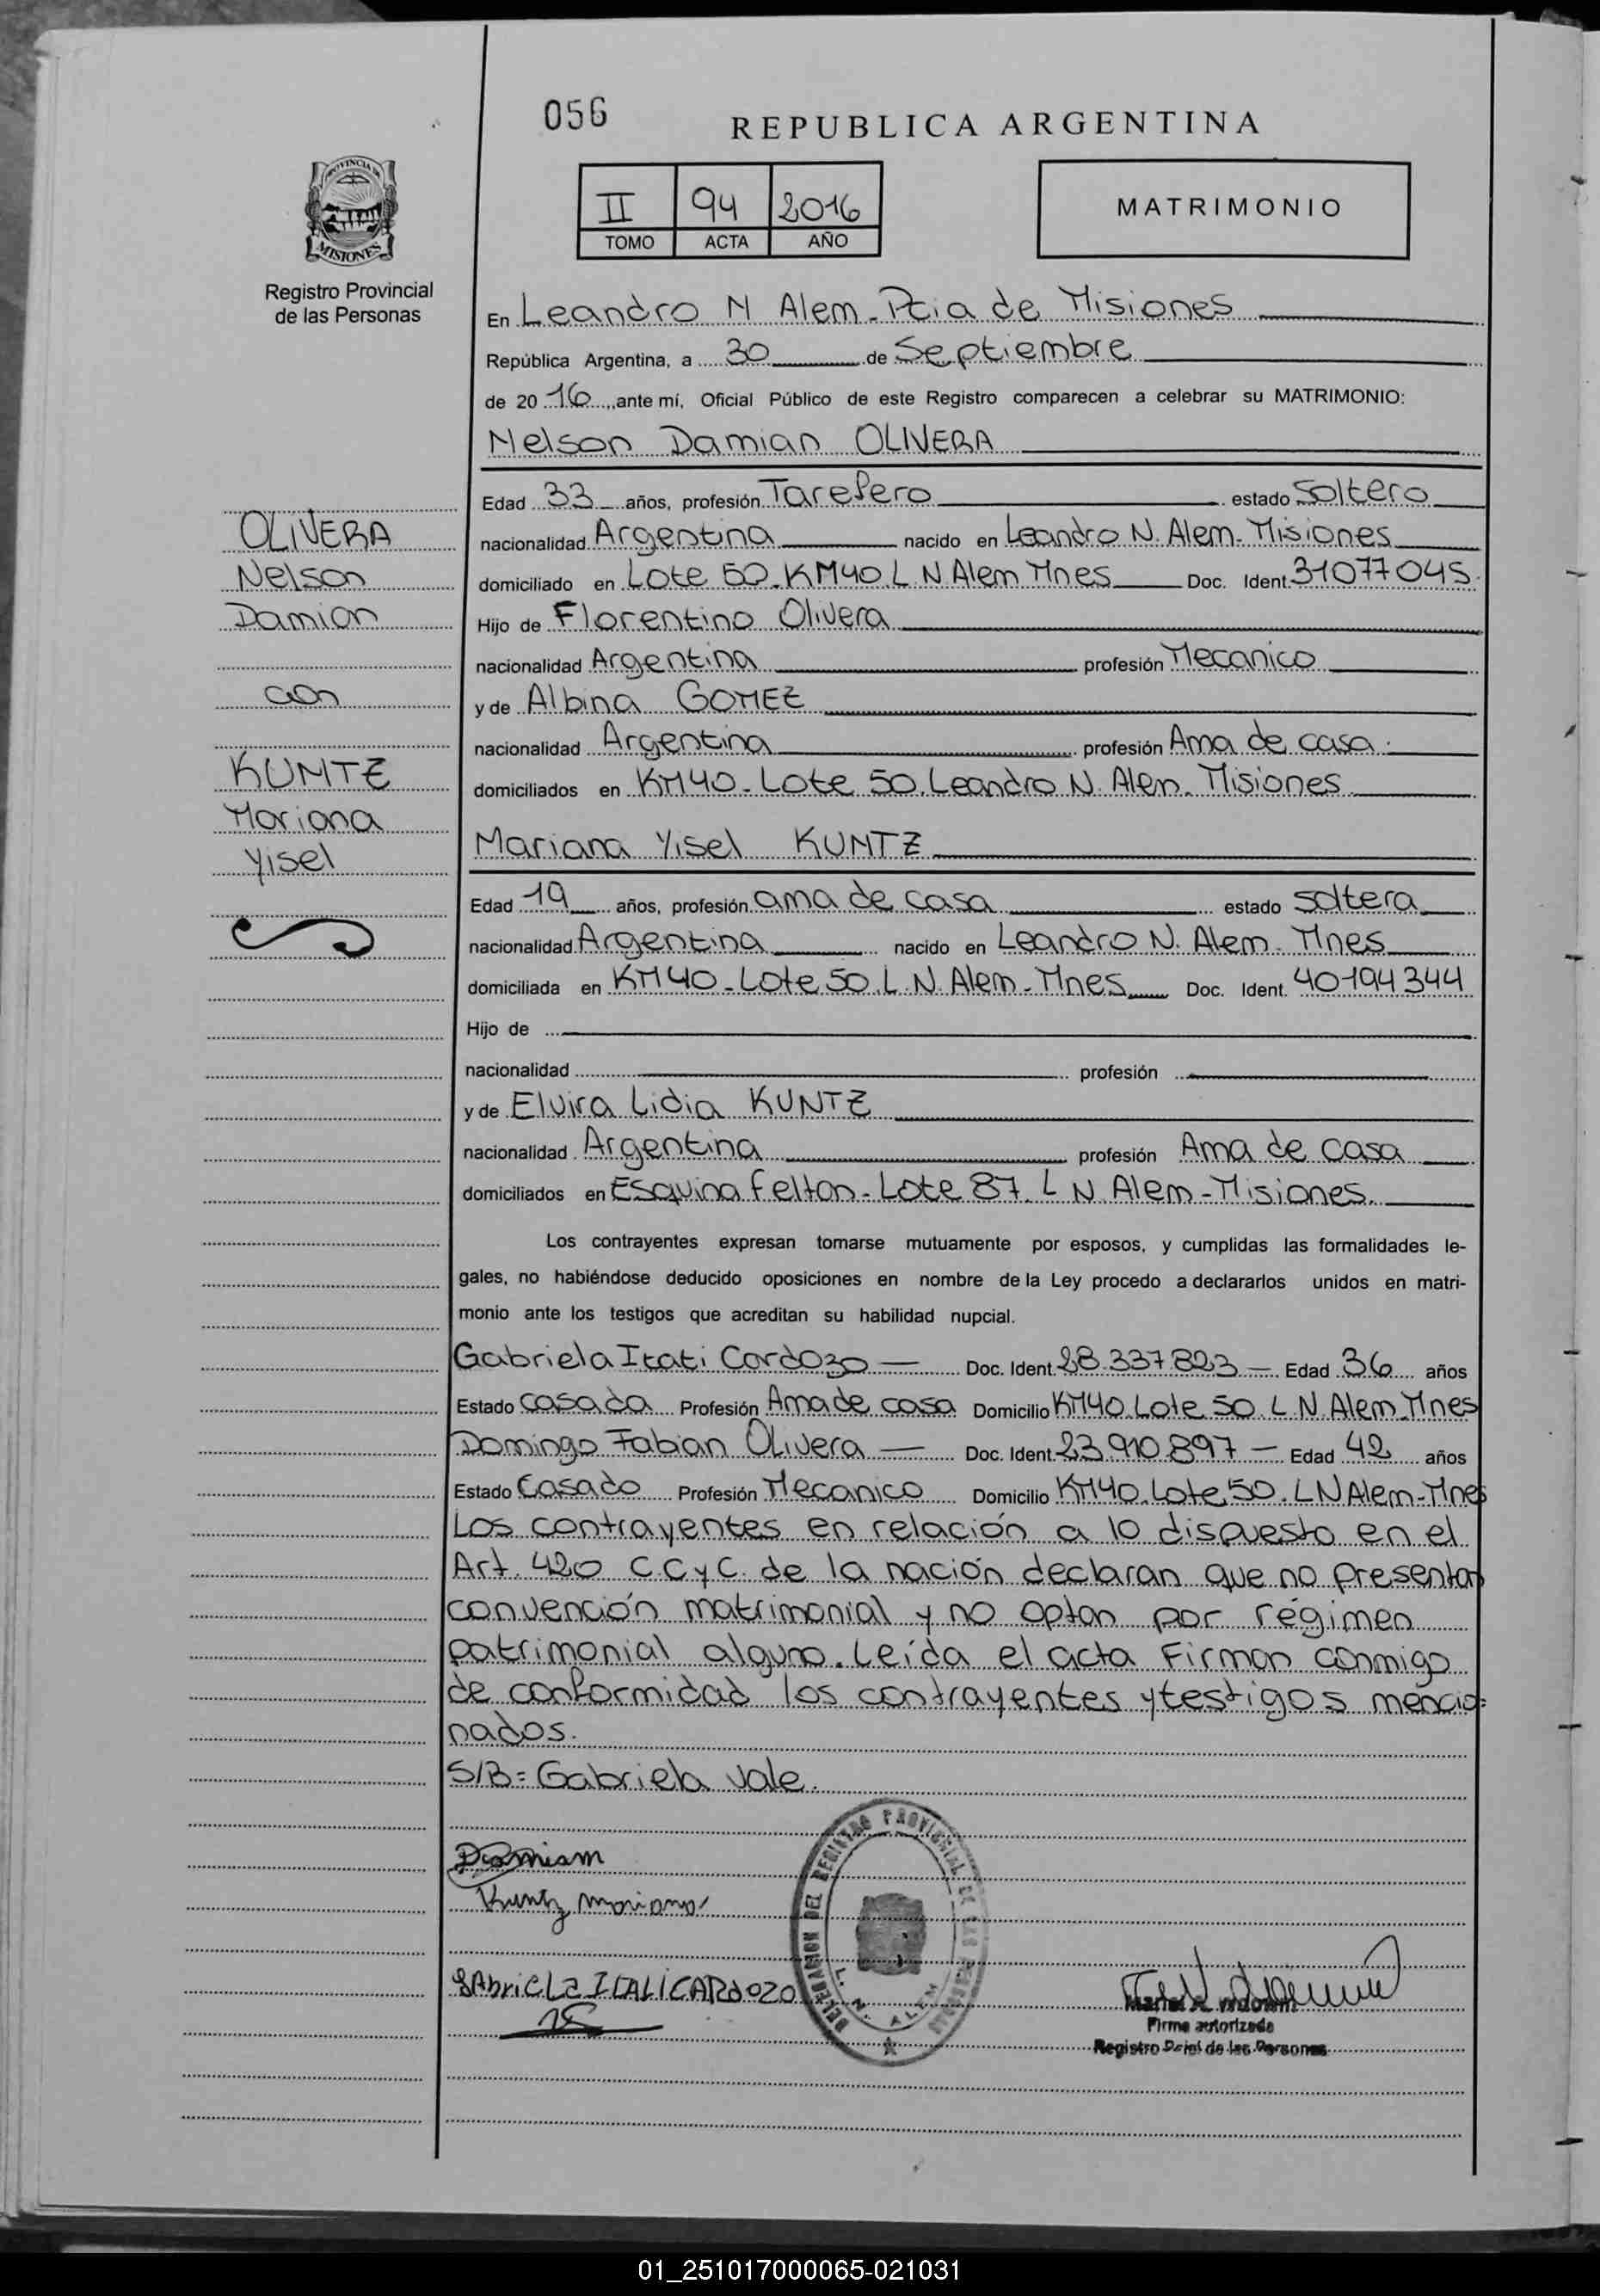 056
REPUBLICA ARGENTINA
PROVINCIA DE
MISIONES
Registro Provincial
de las Personas
II 94 2016
TOMO ACTA AÑO
MATRIMONIO
En Leandro N Alem - Pcia de Misiones
República Argentina, a 30 de Septiembre
de 2016, ante mí, Oficial Público de este Registro comparecen a celebrar su MATRIMONIO:
Nelson Damian OLIVERA
Edad 33 años, profesión Tarefero estado Soltero
nacionalidad Argentina nacido en Leandro N. Alem - Misiones
domiciliado en Lote 50 - KM40 L N Alem Mnes Doc. Ident. 31077045
Hijo de Florentino Olivera
nacionalidad Argentina profesión Mecanico
y de Albina GOMEZ
nacionalidad Argentina profesión Ama de casa.
domiciliados en KM40 - Lote 50. Leandro N. Alem - Misiones
Mariana Yisel KUNTZ
Edad 19 años, profesión ama de casa estado Soltera
nacionalidad Argentina nacido en Leandro N. Alem - Mnes
domiciliada en KM40 - Lote 50. L. N. Alem - Mnes Doc. Ident. 40194344
Hijo de
nacionalidad profesión
y de Elvira Lidia KUNTZ
nacionalidad Argentina profesión Ama de casa
domiciliados en Esquina Felton - Lote 87. L N. Alem - Misiones.
OLIVERA
Nelson
Damian
con
KUNTZ
Mariana
Yisel
Los contrayentes expresan tomarse mutuamente por esposos, y cumplidas las formalidades le-
gales, no habiéndose deducido oposiciones en nombre de la Ley procedo a declararlos unidos en matri-
monio ante los testigos que acreditan su habilidad nupcial.
Gabriela Itati Cardozo — Doc. Ident. 28.337.823 — Edad 36 años
Estado Casada Profesión Ama de casa Domicilio KM40. Lote 50. L N. Alem - Mnes
Domingo Fabian Olivera — Doc. Ident. 23.910.897 — Edad 42 años
Estado Casado Profesión Mecanico Domicilio KM40. Lote 50. L N Alem - Mnes
Los contrayentes en relación a lo dispuesto en el
Art. 420 C.C y C. de la nación declaran que no presentan
convención matrimonial y no optan por régimen
patrimonial alguno. Leída el acta firman conmigo
de conformidad los contrayentes y testigos mencio=
nados.
S/B= Gabriela Vale.
Damian
Kuntz Mariana
GAbriELa ITATI CARdOZO
DELEGACION DEL REGISTRO PROVINCIAL DE LAS PERSONAS
L. N. ALEM
Firma autorizada
Registro Pcial de las Personas
01_251017000065-021031